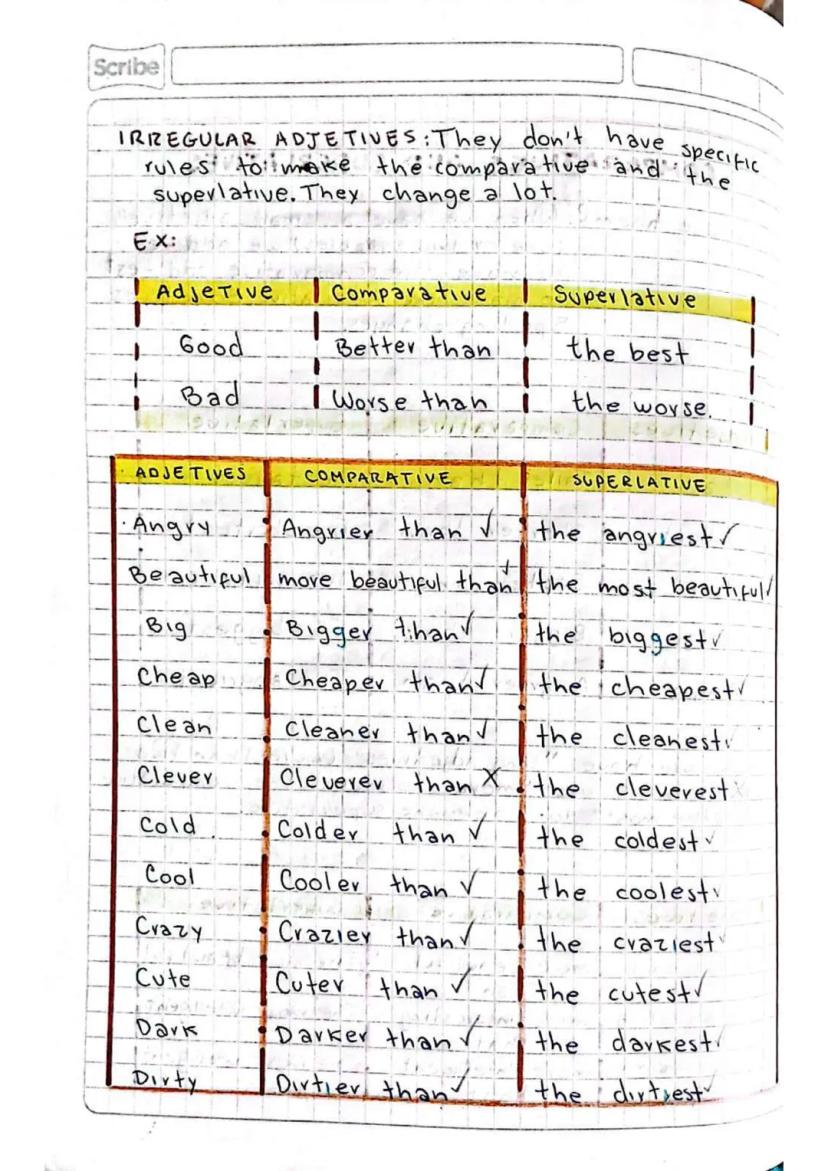 Scribe
IRREGULAR ADJETIVES: They don't have specific
rules to make the comparative and the
superlative. They change a lot.
Ex:
Adjetive Comparative Superlative
Good Better than the best
Bad Worse than the worse.
ADJETIVES COMPARATIVE SUPERLATIVE
Angry Angrier than ✓ the angriest ✓
Beautiful more beautiful than ✓ the most beautiful ✓
Big Bigger than ✓ the biggest ✓
Cheap Cheaper than ✓ the cheapest ✓
Clean Cleaner than ✓ the cleanest ✓
Clever Cleverer than X the cleverest X
Cold Colder than ✓ the coldest ✓
Cool Cooler than ✓ the coolest ✓
Crazy Crazier than ✓ the craziest ✓
Cute Cuter than ✓ the cutest ✓
Dark Darker than ✓ the darkest ✓
Dirty Dirtier than ✓ the dirtiest ✓